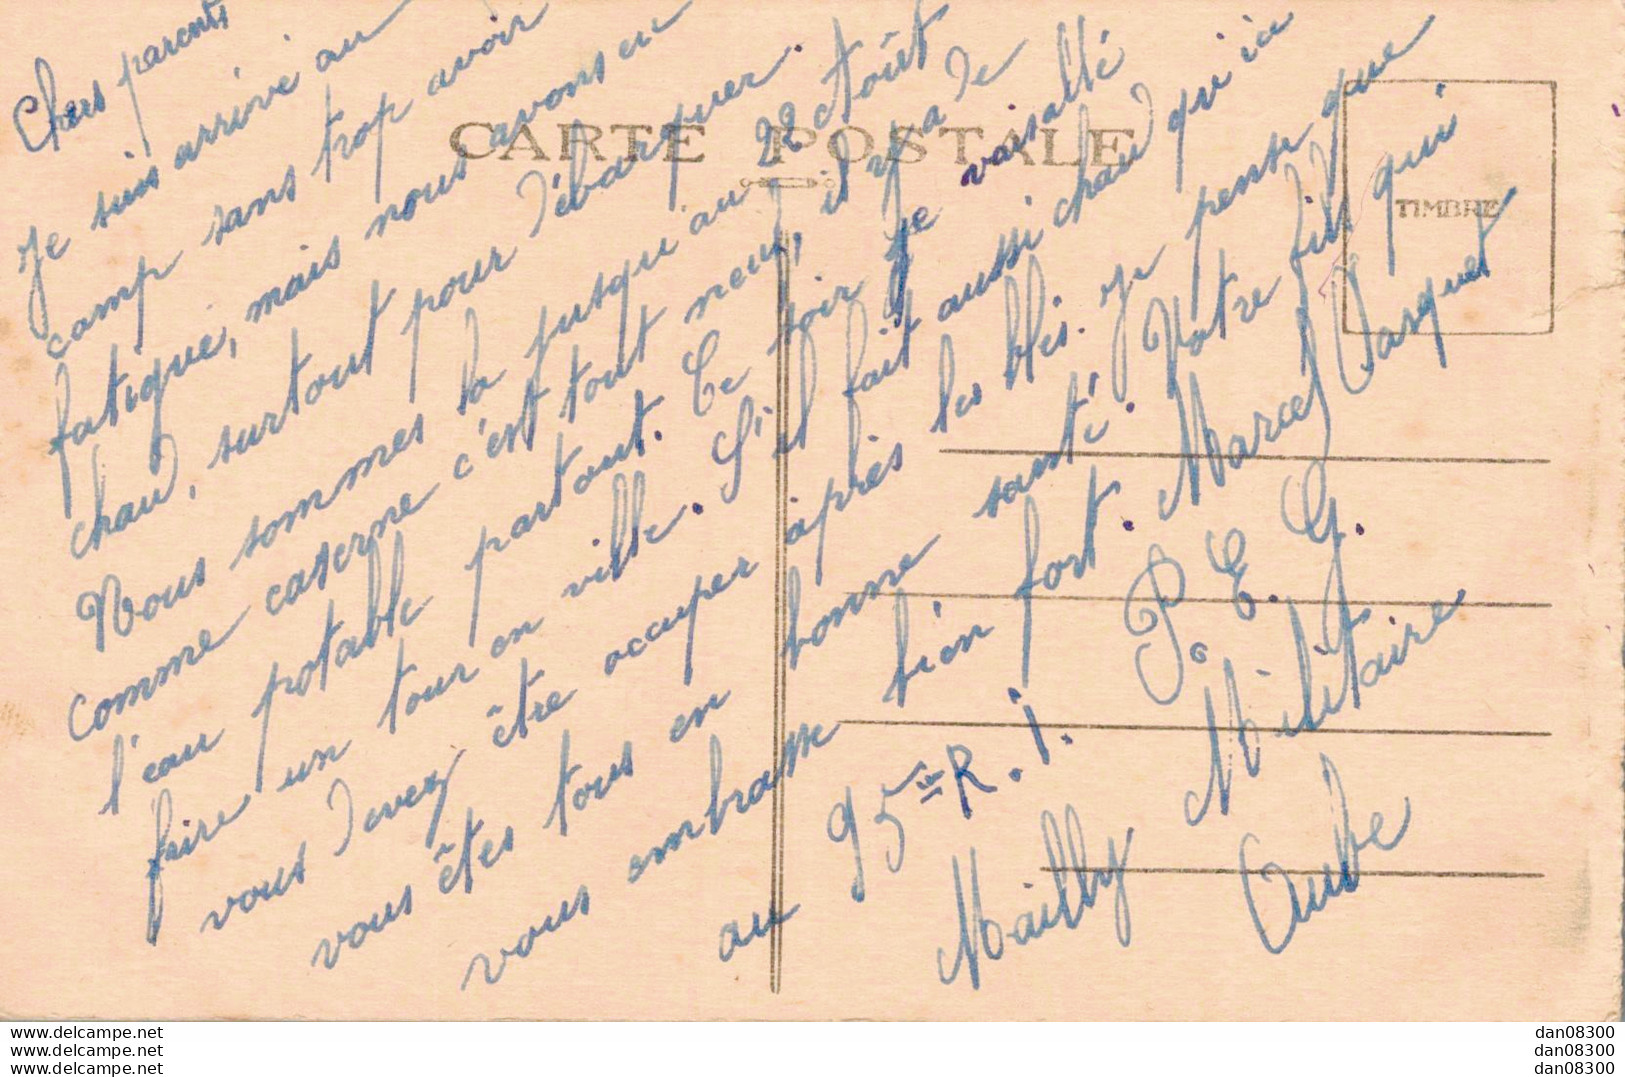 Chers parents
Je suis arrivé au
camp sans trop avoir
fatigué, mais nous avons eu
chaud, surtout pour débarquer.
Nous sommes la jusqu'au 22 Août
comme caserne c'est tout neuf, il y a de
l'eau potable partout. Ce soir je vais allé
faire un tour en ville. S'il fait aussi chaud qu'ici
vous devez être occuper après les blés. Je pense que
vous êtes tous en bonne santé. Votre fils qui
vous embrasse bien fort. Marcel Pasquet
au 95me R.I. P.E.G.
Mailly Militaire
Aube
CARTE POSTALE
TIMBRE
www.delcampe.net
www.delcampe.net
www.delcampe.net
dan08300
dan08300
dan08300